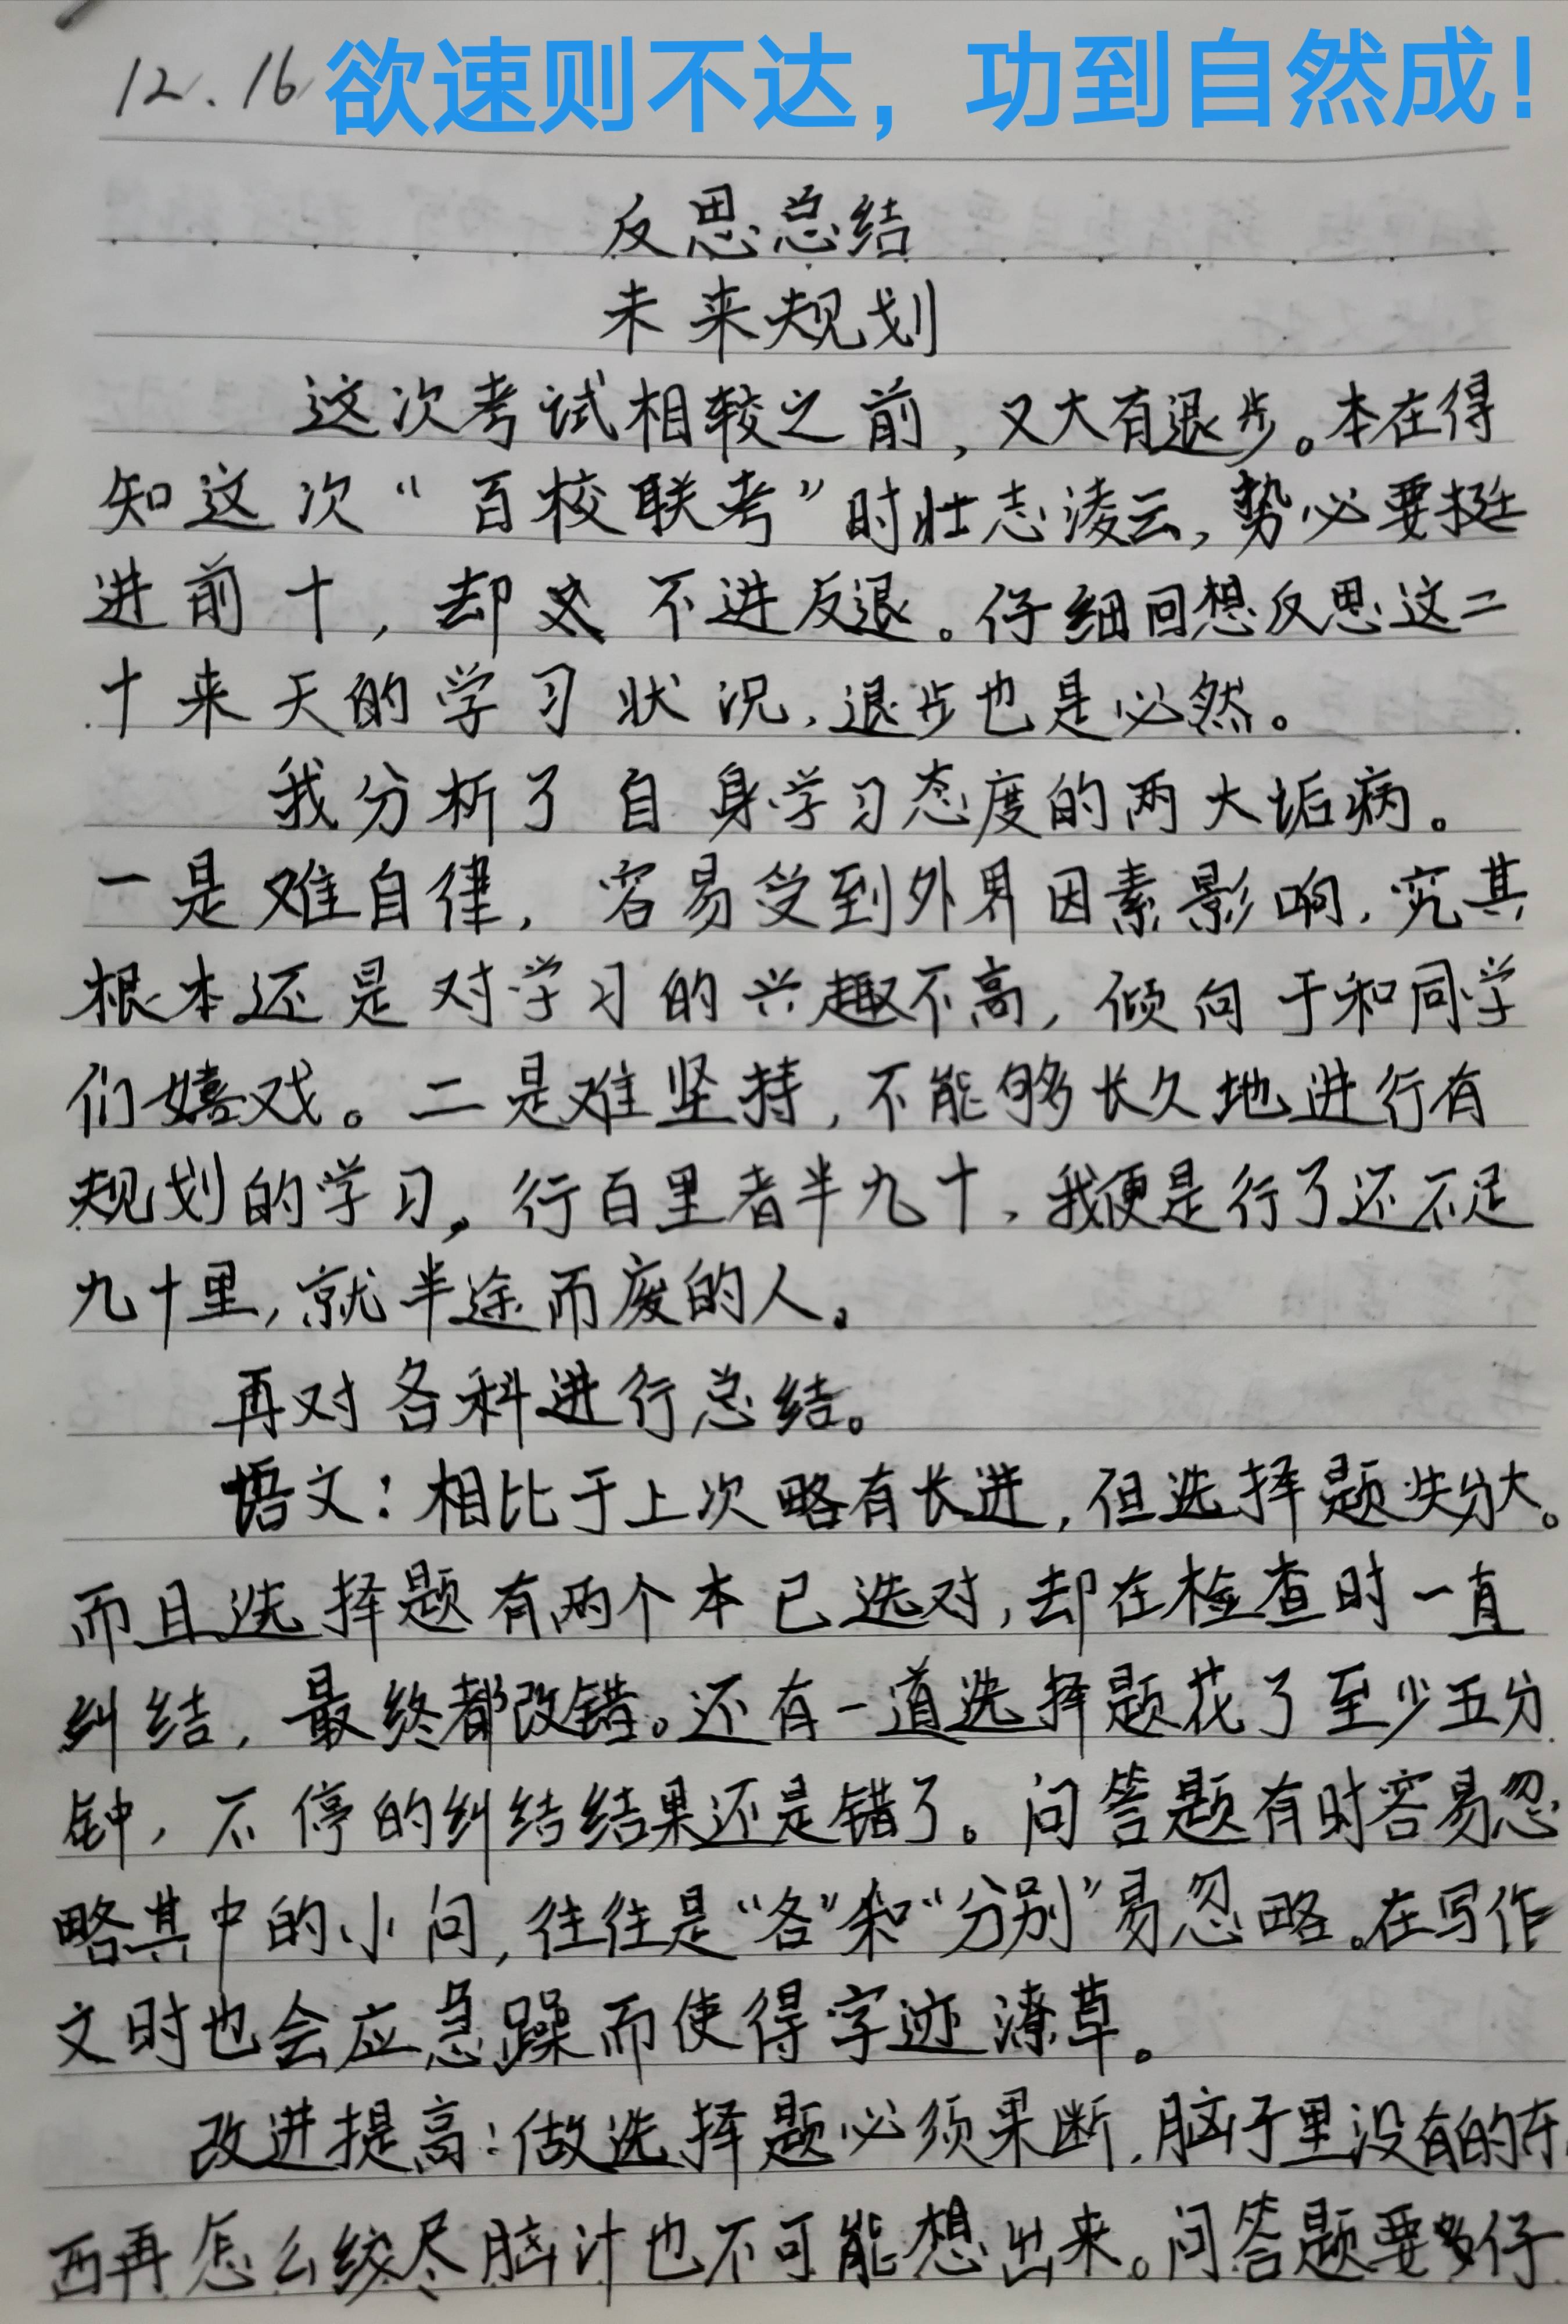 12.16 欲速则不达，功到自然成！
反思总结
未来规划
这次考试相较之前，又大有退步。本在得
知这次“百校联考”时壮志凌云，势必要挺
进前十，却又不进反退。仔细回想反思这二
十来天的学习状况，退步也是必然。
我分析了自身学习态度的两大垢病。
一是难自律，容易受到外界因素影响，究其
根本还是对学习的兴趣不高，倾向于和同学
们嬉戏。二是难坚持，不能够长久地进行有
规划的学习，行百里者半九十，我便是行了还不足
九十里，就半途而废的人。
再对各科进行总结。
语文：相比于上次略有长进，但选择题失分大。
而且选择题有两个本已选对，却在检查时一直
纠结，最终都改错。还有一道选择题花了至少五分
钟，不停的纠结结果还是错了。问答题有时容易忽
略其中的小问，往往是“各”和“分别”易忽略。在写作
文时也会应急躁而使得字迹潦草。
改进提高：做选择题必须果断，脑子里没有的东
西再怎么绞尽脑汁也不可能想出来。问答题要多仔